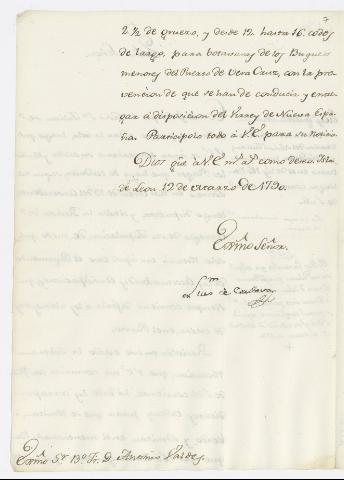 7
2 1/2 de grueso, y desde 12. hasta 16. codos
de largo, para botavaras de los Buques
menores del Puerto de Vera Cruz, con la pre
vencion de que se han de conducir y entre
gar á disposicion del Virrey de Nueva Espa
ña. Participolo todo á V.E. para su noticia.
Dios gũe á V.E. m.s a.s como deseo. Isla
de Leon 12 de Marzo de 1790.
Exc̃mo Señor.
Luis de Cordova
Exc̃mo S.r B.o Fr. D. Antonio Valdes.